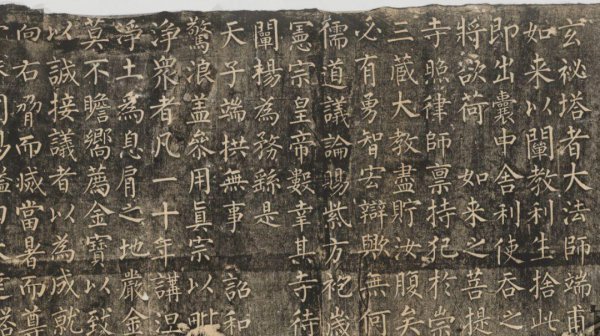 玄秘塔者大法師端甫
如来以闡教利生捨此
即出囊中舍利使吞之
將欲荷如来之菩提
寺照律師禀持犯於崇
三蔵大教盡貯汝腹矣
必有勇智宏辯歟無何
儒道議論賜紫方袍歳
憲宗皇帝數幸其寺待
闡楊為務繇是
天子端拱無事詔和
驚浪盖參用真宗以毗
淨衆者凡一十年講涅
淨土為息肩之地嚴金
莫不瞻嚮薦金寶以致
以誠接議者以為成就
向右脅而滅當暑而尊